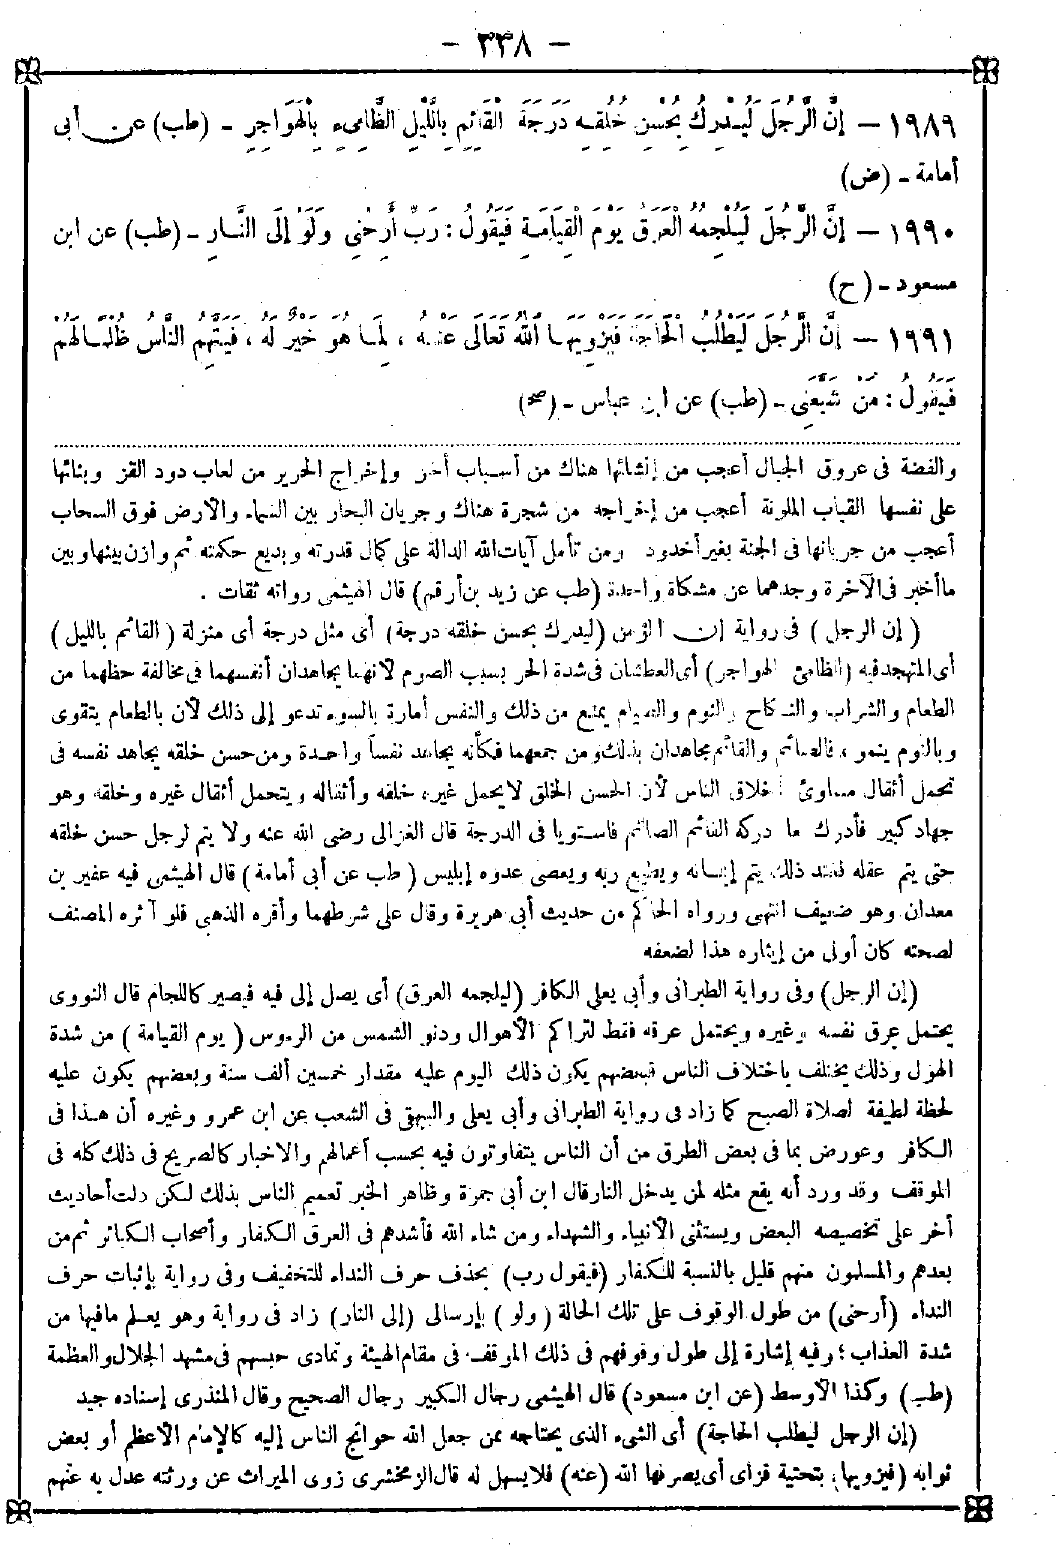 - ٣٣٨ -
١٩٨٩ - إِنَّ الرَّجُلَ لَيُدْرِكُ بِحُسْنِ خُلُقِهِ دَرَجَةَ الْقَائِمِ بِاللَّيْلِ الظَّامِىءِ بِالْهَوَاجِرِ - (طب) عن أبى
أمامة - (ض)
١٩٩٠ - إِنَّ الرَّجُلَ لَيُلْجِمُهُ الْعَرَقُ يَوْمَ الْقِيَامَةِ فَيَقُولُ : رَبِّ أَرِحْنِي وَلَوْ إِلَى النَّارِ - (طب) عن ابن
مسعود - (ح)
١٩٩١ - إِنَّ الرَّجُلَ لَيَطْلُبُ الْحَاجَةَ فَيَزْوِيهَا اللَّهُ تَعَالَى عَنْهُ ، لِمَا هُوَ خَيْرٌ لَهُ ، فَيَتَّهِمُ النَّاسَ ظُلْمًا لَهُمْ
فَيَقُولُ : مَنْ شَبَعَنِي - (طب) عن ابن عباس - (صح)
والفضة فى عروق الجبال أعجب من إنشائها هناك من أسباب أخر وإخراج الحرير من لعاب دود القز وبنائها
على نفسها القباب الملونة أعجب من إخراجه من شجرة هناك وجريان البحار بين السماء والأرض فوق السحاب
أعجب من جريانها فى الجنة بغير أخدود ومن تأمل آيات الله الدالة على كمال قدرته وبديع حكمته ثم وازن بينها وبين
ما أخبر فى الآخرة وجدهما عن مشكاة واحدة (طب عن زيد بن أرقم) قال الهيثمى رواته ثقات .
( إن الرجل ) فى رواية إن المؤمن (ليدرك بحسن خلقه درجة) أى مثل درجة أى منزلة ( القائم بالليل )
أى المتهجد فيه (الظامئ بالهواجر) أى العطشان فى شدة الحر بسبب الصوم لأنهما يجاهدان أنفسهما فى مخالفة حظهما من
الطعام والشراب والنكاح والنوم والصيام يمنع من ذلك والنفس أمارة بالسوء تدعو إلى ذلك لأن بالطعام يتقوى
وبالنوم ينمو ، فالصائم والقائم مجاهدان بذلك ومن جمعهما فكأنه يجاهد نفساً واحدة ومن حسن خلقه يجاهد نفسه فى
تحمل أثقال مساوئ أخلاق الناس لأن الحسن الخلق لا يحمل غيره خلقه وأثقاله ويتحمل أثقال غيره وخلقه وهو
جهاد كبير فأدرك ما دركه القائم الصائم فاستويا فى الدرجة قال الغزالى رضى الله عنه ولا يتم لرجل حسن خلقه
حتى يتم عقله فعند ذلك يتم إيمانه ويطيع ربه ويعصى عدوه إبليس ( طب عن أبى أمامة ) قال الهيثمى فيه عفير بن
معدان وهو ضعيف انتهى ورواه الحاكم من حديث أبى هريرة وقال على شرطهما وأقره الذهبى فلو آثره المصنف
لصحته كان أولى من إيثاره هذا لضعفه
(إن الرجل) وفى رواية الطبرانى وأبى يعلى الكافر (ليلجمه العرق) أى يصل إلى فيه فيصير كاللجام قال النووى
يحتمل عرق نفسه وغيره ويحتمل عرقه فقط لتراكم الأهوال ودنو الشمس من الرءوس ( يوم القيامة ) من شدة
الهول وذلك يختلف باختلاف الناس فبعضهم يكون ذلك اليوم عليه مقدار خمسين ألف سنة وبعضهم يكون عليه
لحظة لطيفة لصلاة الصبح كما زاد فى رواية الطبرانى وأبى يعلى والبيهقى فى الشعب عن ابن عمرو وغيره أن هذا فى
الكافر وعورض بما فى بعض الطرق من أن الناس يتفاوتون فيه بحسب أعمالهم والاخبار كالصريح فى ذلك كله فى
الموقف وقد ورد أنه يقع مثله لمن يدخل النار قال ابن أبى جمزة وظاهر الخبر تعميم الناس بذلك لكن دلت أحاديث
أخر على تخصيصه البعض ويستثنى الأنبياء والشهداء ومن شاء الله فأشدهم فى العرق الكفار وأصحاب الكبائر ثم من
بعدهم والمسلمون منهم قليل بالنسبة للكفار (فيقول رب) بحذف حرف النداء للتخفيف وفى رواية بإثبات حرف
النداء (أرحنى) من طول الوقوف على تلك الحالة ( ولو ) بإرسالى (إلى النار) زاد فى رواية وهو يعلم ما فيها من
شدة العذاب ؛ وفيه إشارة إلى طول وقوفهم فى ذلك الموقف فى مقام الهيئة وتمادى حبسهم فى مشهد الجلال والعظمة
(طب) وكذا الأوسط (عن ابن مسعود) قال الهيثمى رجال الكبير رجال الصحيح وقال المنذرى إسناده جيد
(إن الرجل ليطلب الحاجة) أى الشىء الذى يحتاجه ممن جعل الله حوائج الناس إليه كالإمام الأعظم أو بعض
نوابه (فيزويها) بتحتية فزاى أى يصرفها الله (عنه) فلا يسهل له قال الزمخشرى زوى الميراث عن ورثته عدل به عنهم